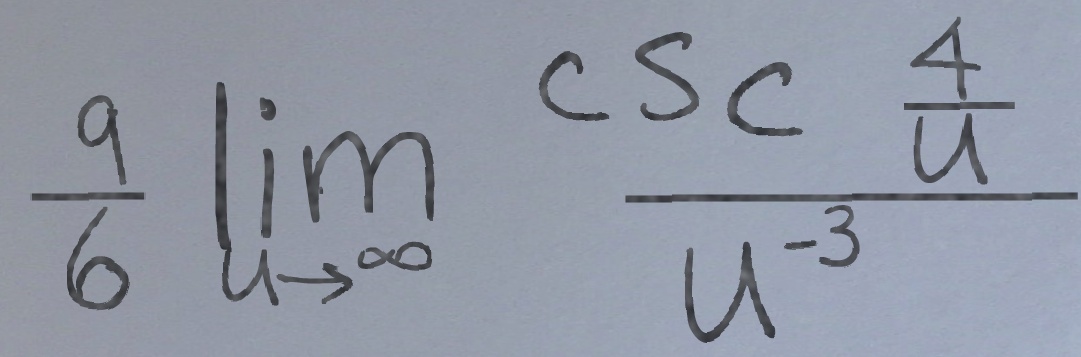 \frac{9}{6} \lim_{u \to \infty} \frac{\csc \frac{4}{u}}{u^{-3}}